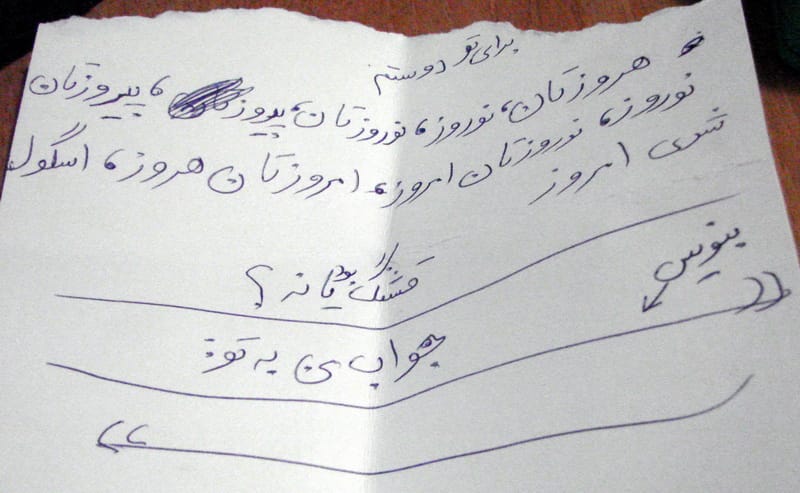 برای تو دوستم
هروزتان، نوروز، نوروزتان، پیروز، پیروزتان
نوروز، نوروزتان امروز، امروزتان هروز، اسگول
شدی امروز
قشنگ بود یا نه؟
بنویس
جواب من به تو: